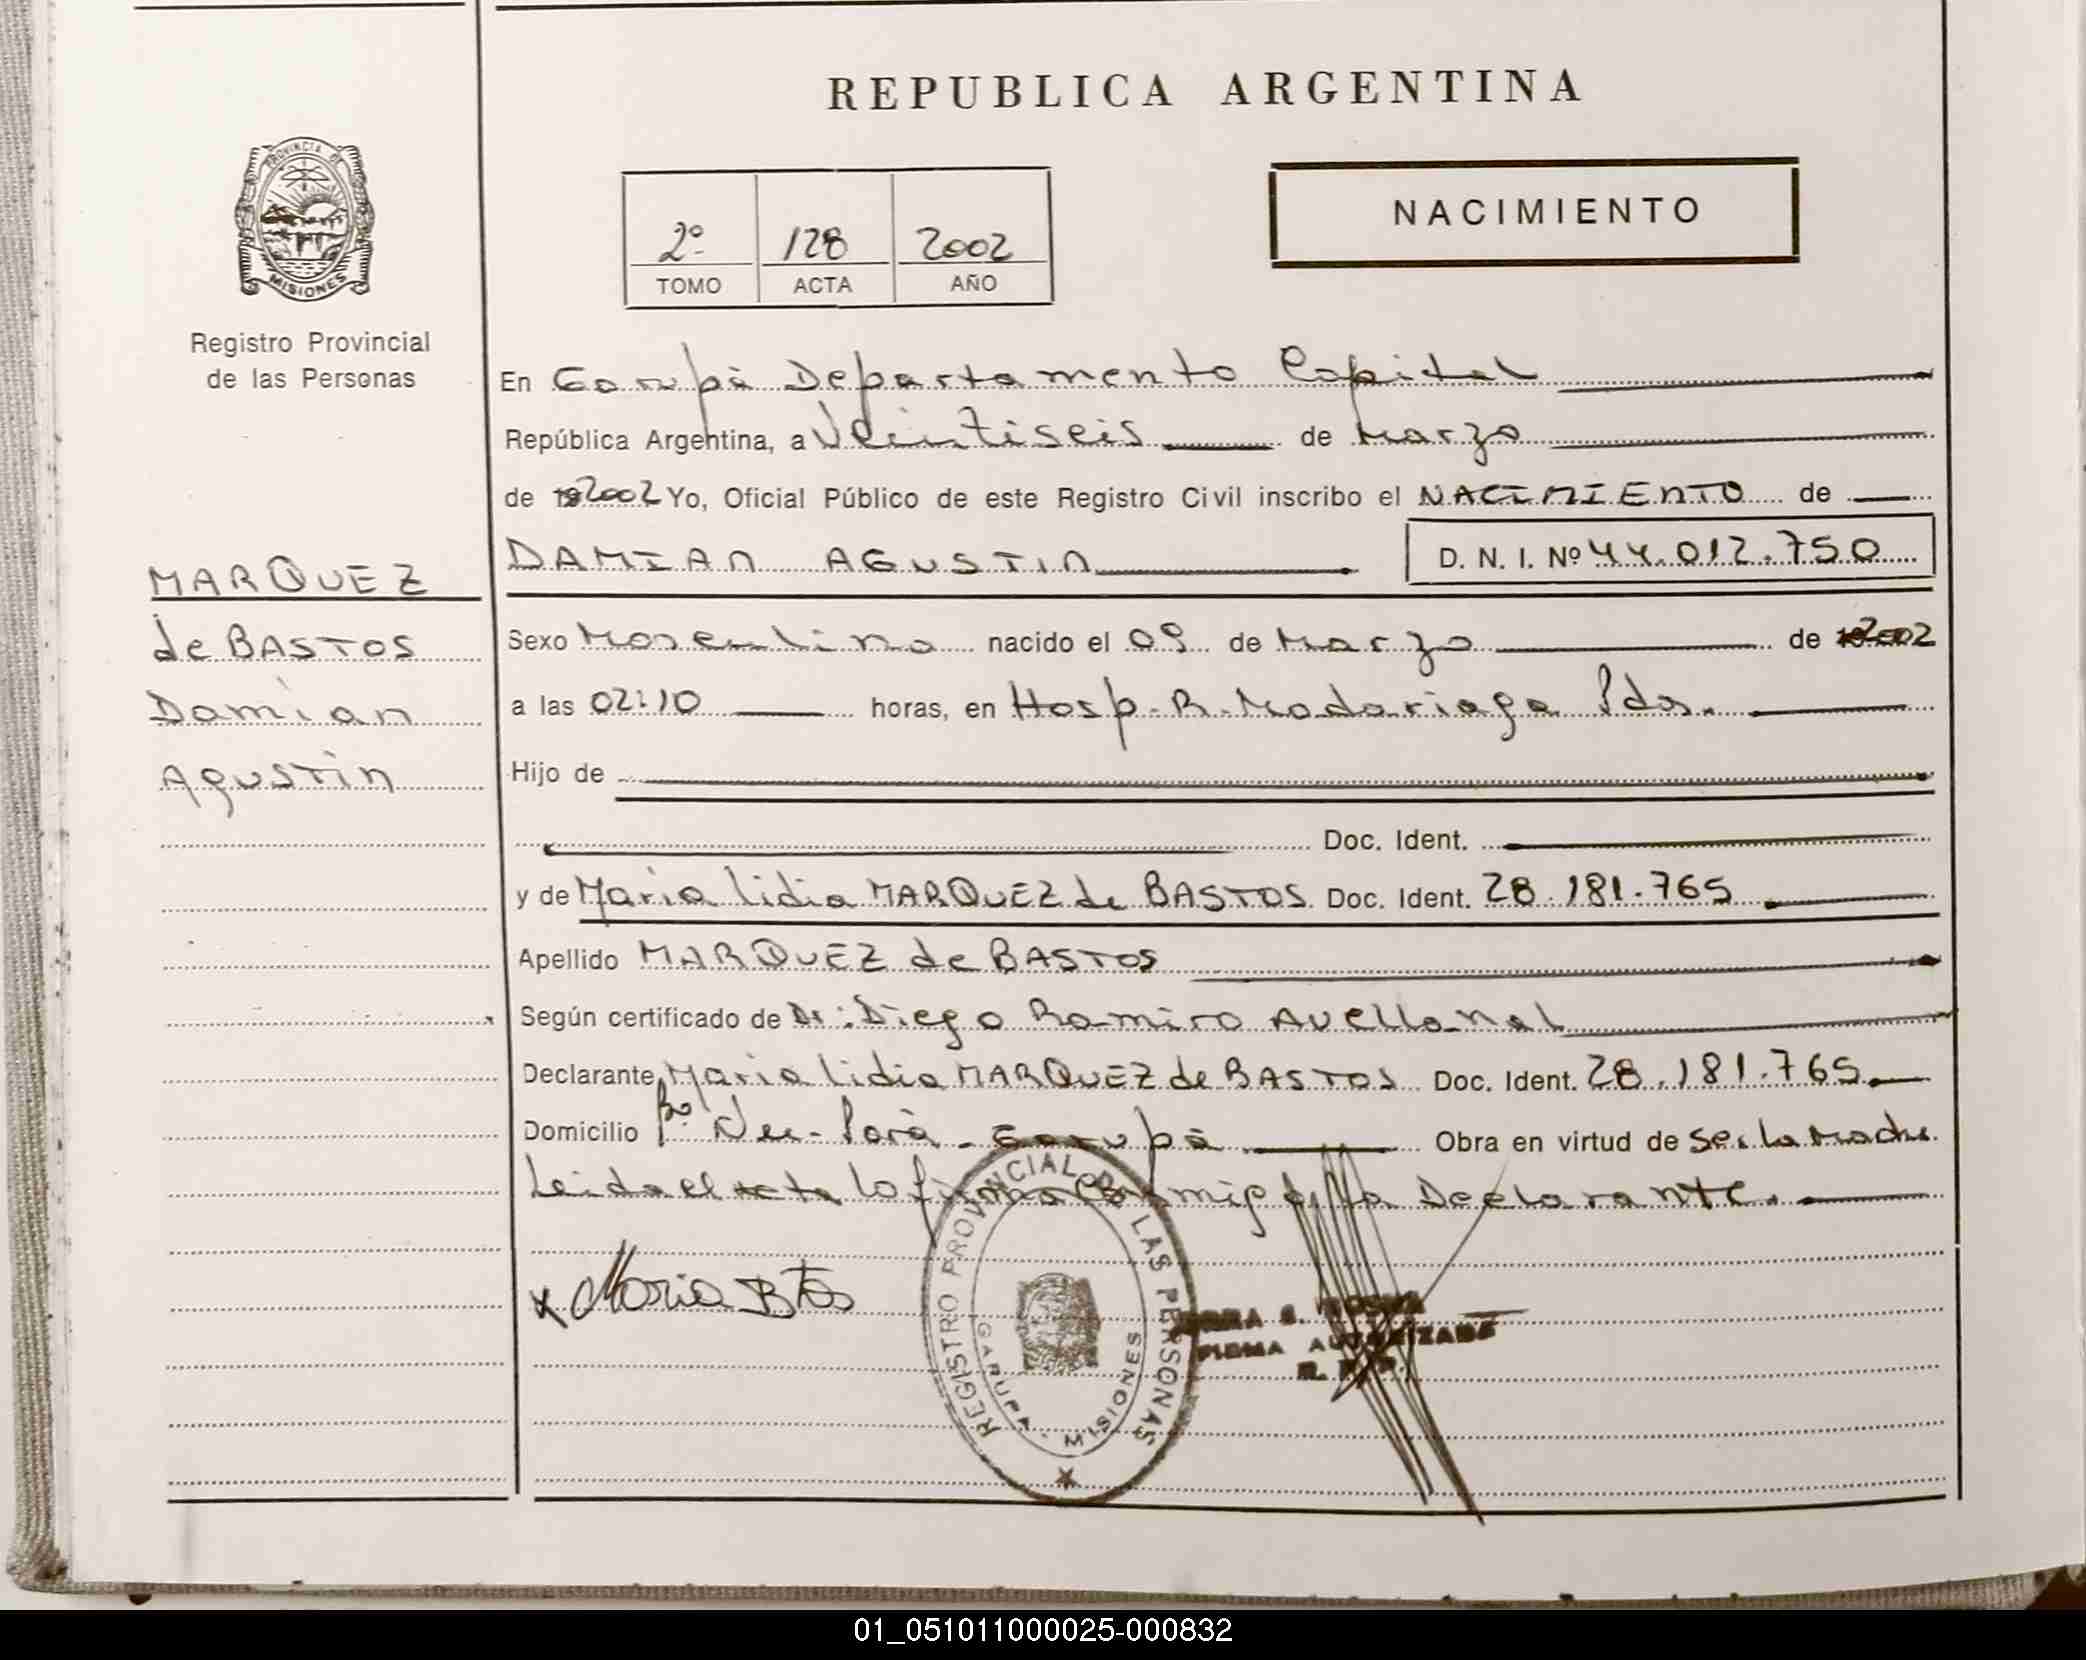 REPUBLICA ARGENTINA
PROVINCIA DE
MISIONES
Registro Provincial
de las Personas
NACIMIENTO
2º 128 2002
TOMO ACTA AÑO
En Garupá Departamento Capital
República Argentina, a Veintiseis de Marzo
de 192002 Yo, Oficial Público de este Registro Civil inscribo el NACIMIENTO de
DAMIAN AGUSTIN D. N. I. Nº 44.012.750
MARQUEZ
de BASTOS
Damian
Agustin
Sexo Masculino nacido el 09 de Marzo de 2002
a las 02:10 horas, en Hosp. R. Madariaga Pdas.
Hijo de
Doc. Ident.
y de Maria Lidia MARQUEZ de BASTOS Doc. Ident. 28.181.765
Apellido MARQUEZ de BASTOS
Según certificado de Dr: Diego Ramiro Avellanal
Declarante Maria Lidia MARQUEZ de BASTOS Doc. Ident. 28.181.765
Domicilio Bº Ñu-Porá - Garupá Obra en virtud de ser la Madre
Leida el acta la firma conmigo la Declarante.
x Maria Btos
REGISTRO PROVINCIAL DE LAS PERSONAS
GARUPA - MISIONES
FIRMA AUTORIZADA
R. P. P.
01_051011000025-000832